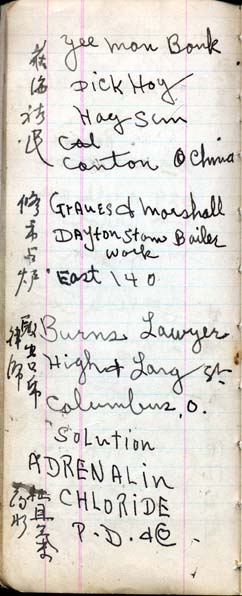 Yee Mon Bonk
Dick Hoy
Hay Sun
Cal
Canton @ China
Graves & Marshall
Dayton Stam Bailer
Work
East 140
Burns Lawyer
High & Lang St.
Columbus, O.
Solution
ADRENALIN
CHLORIDE
P. D. & ©
律師